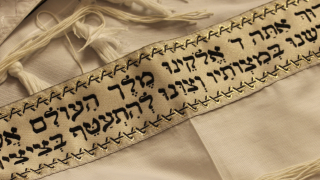 וך אתה ד' אלקינו מלך העולם אש
שנו במצותיו וצונו להתעטף בציצי